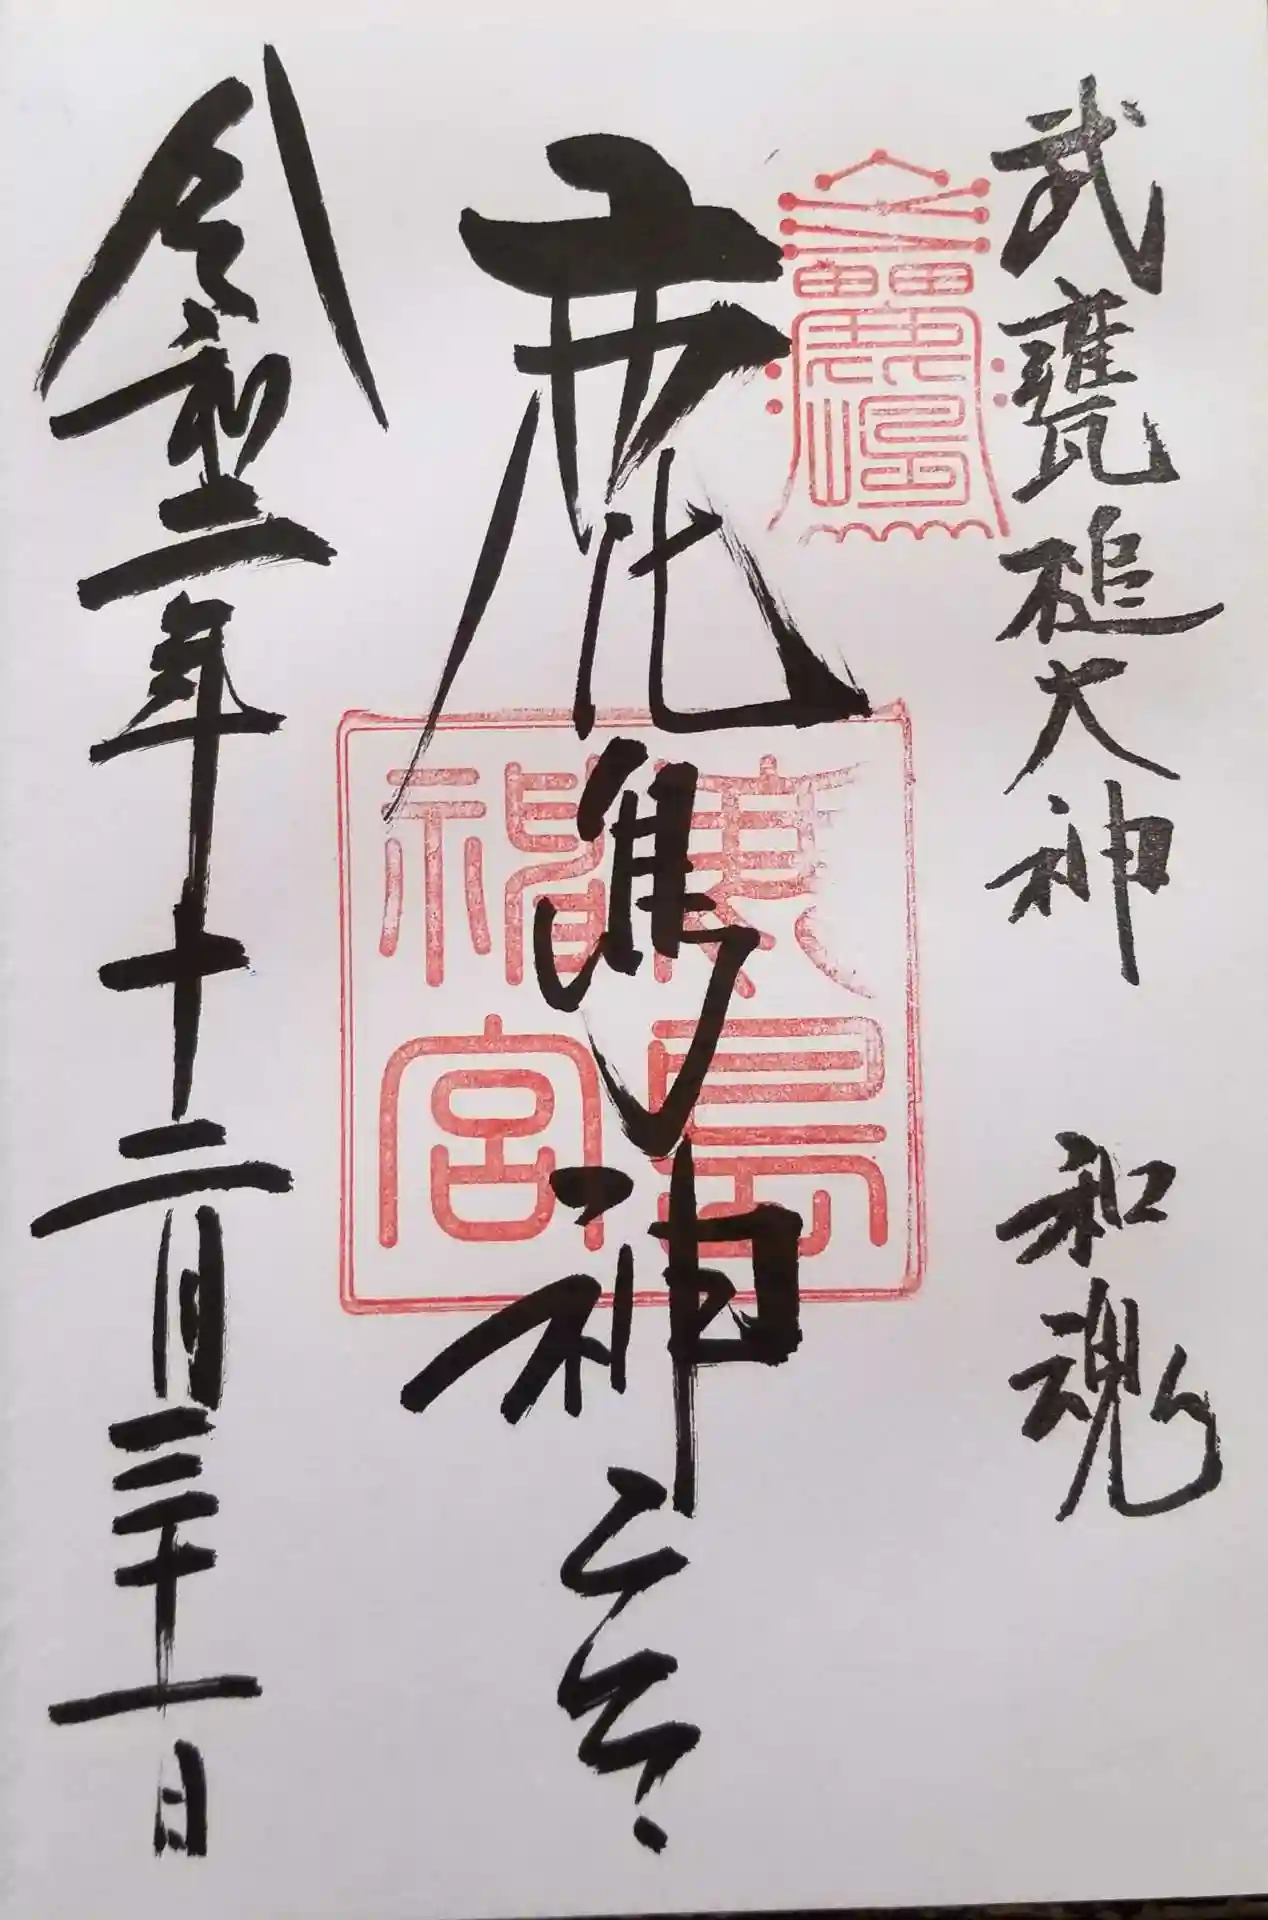 武甕槌大神　和魂
鹿島神宮
鹿島
神宮
令和二年十二月三十一日